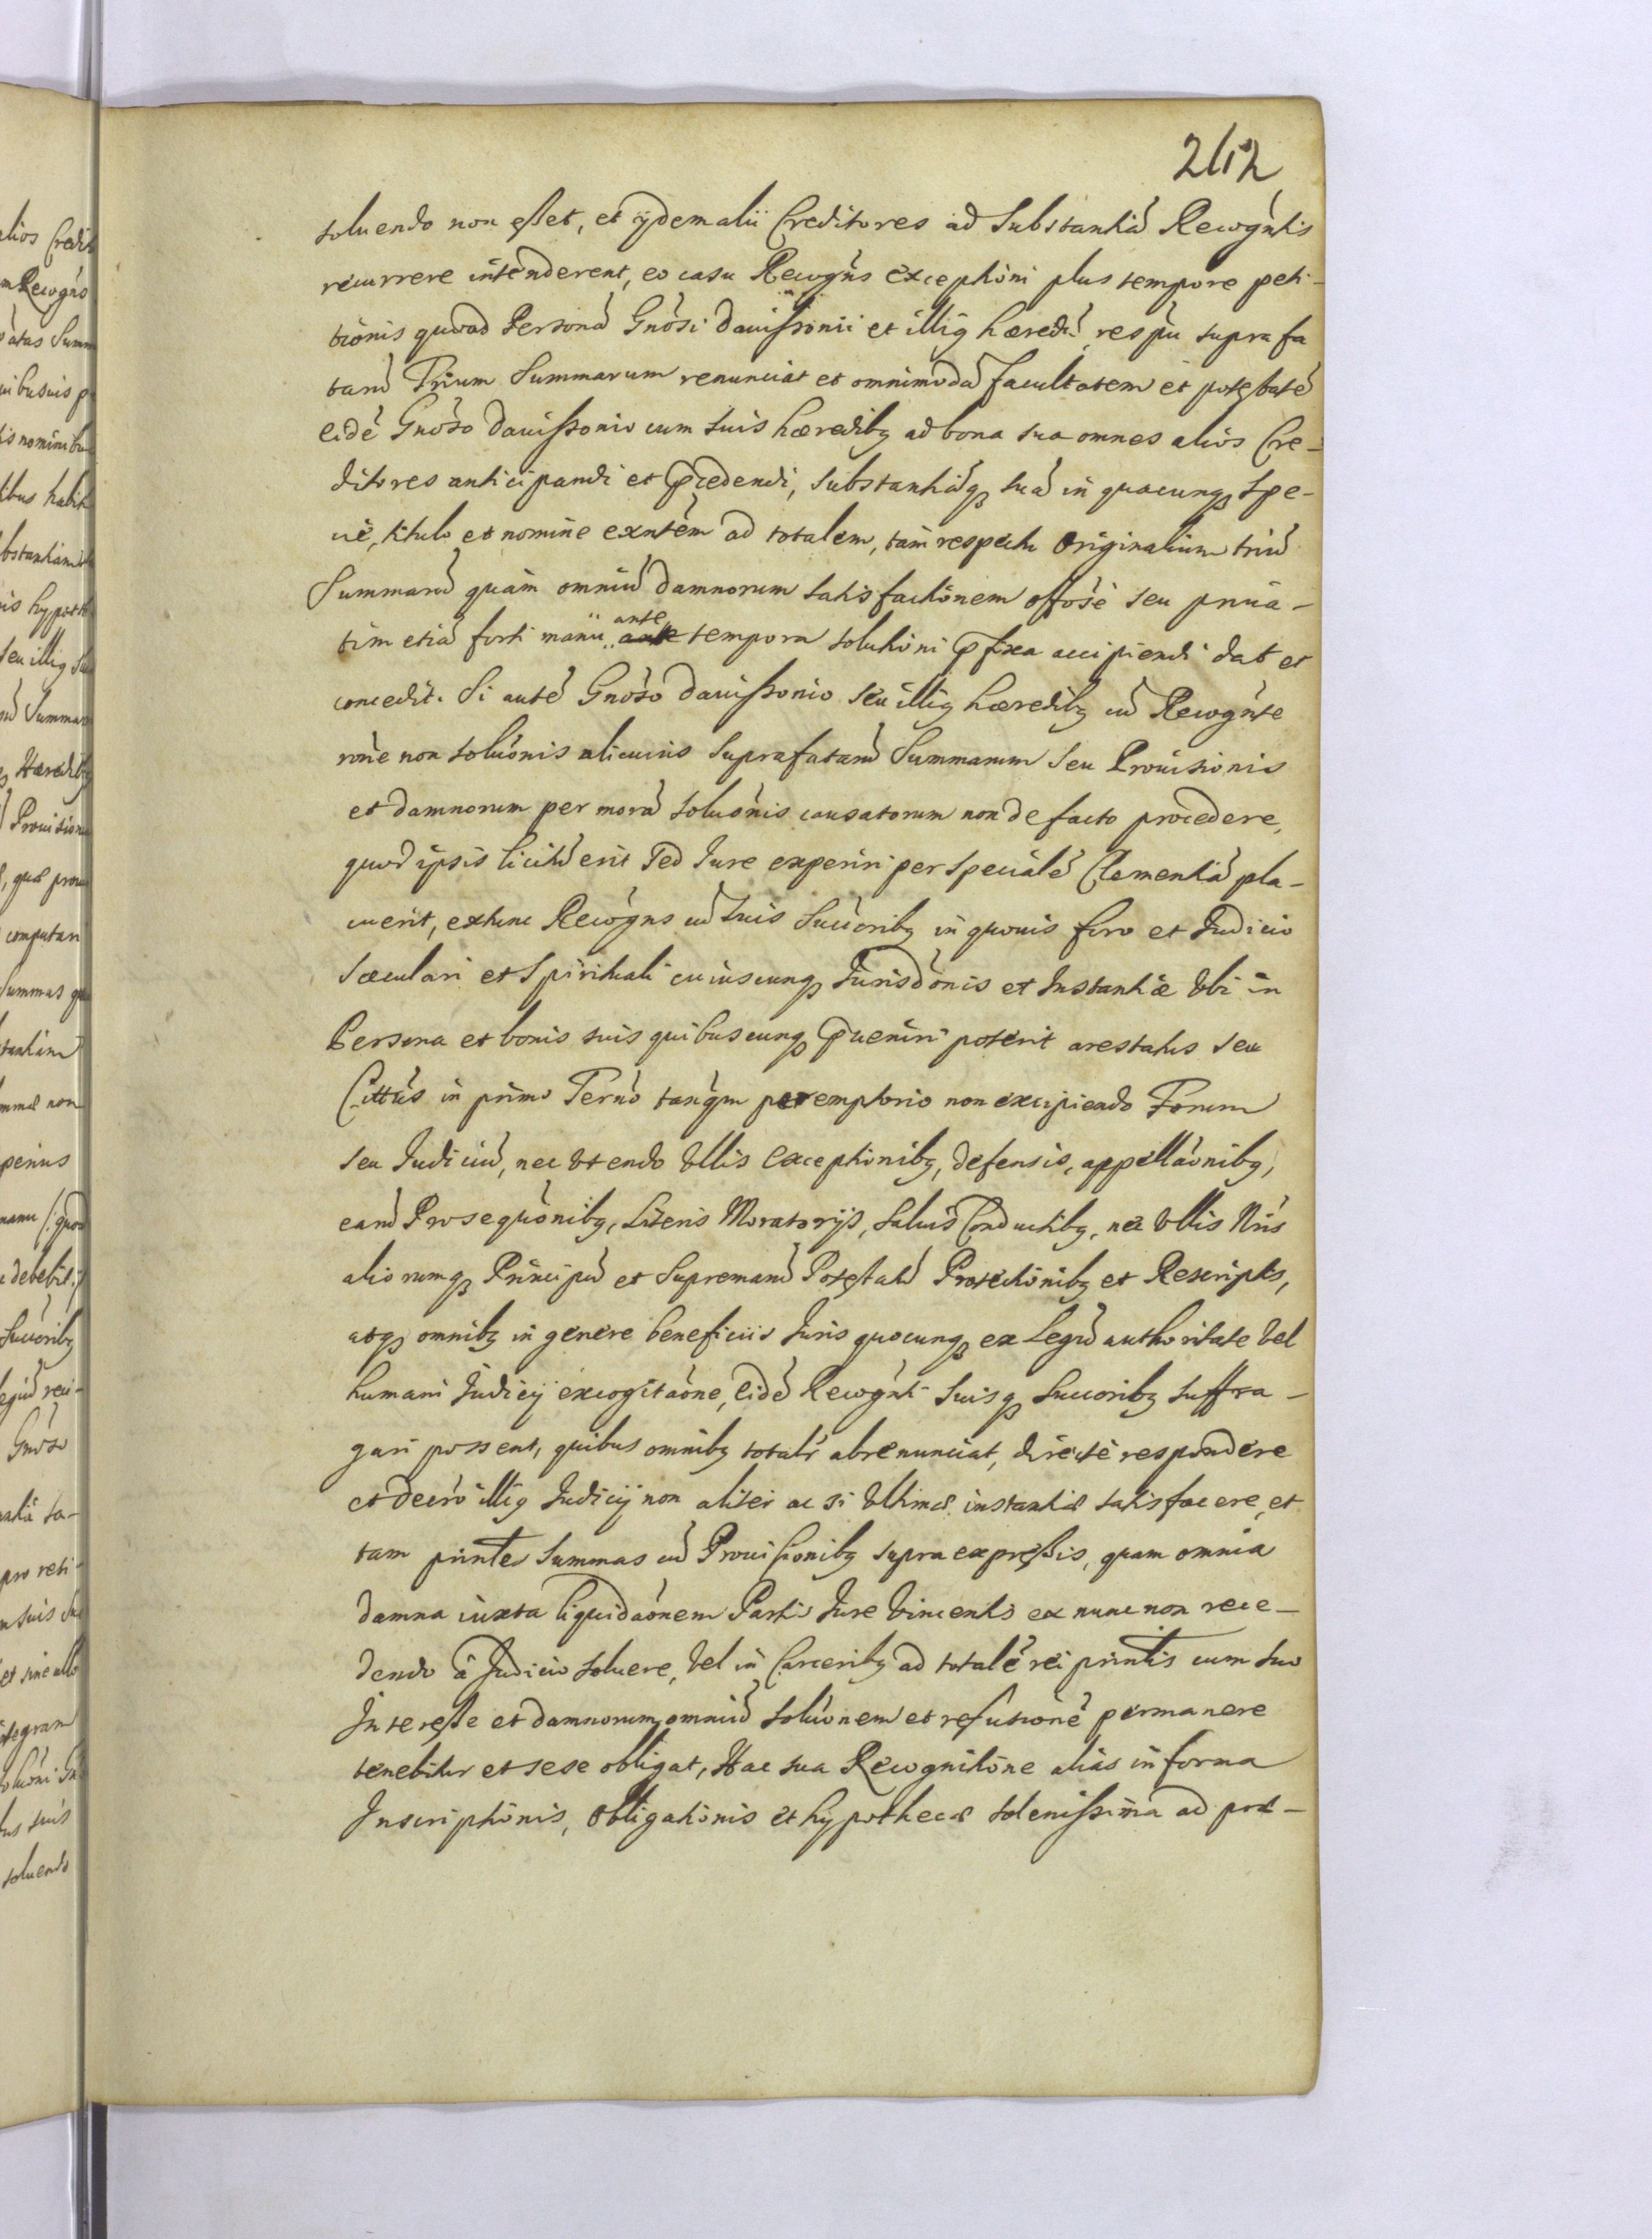 212
soluendo non eßet, et ijdem alii Creditores ad Substantiā Recogn̄tis
recurrere intenderent, eo casu Recogn̄s exceptioni plus tempore peti-
tionis quoad Personā Gn̄osi Dauißonii et illiq hæredū, respū supra fa
tarū Trium Summarum renunciat et omnimodā facultatem et poteßtatē
eidē Gn̄oso Dauißonio cum suis hæredibq ad bona sua omnes aliôs Cre-
ditores anticipandi et p̄cedendi, Substantiāq suā in quacunq Spe-
cie, titulo et nomine exn̄tem ad totalem, tam respectu Originalium triū
Summarū quàm omniū damnorum satisfactionem offōsè seu priua-
tim etiā forti manu ante
ante tempora solutioni p̄fixa accipiendi dat et
concedit. Si autē Gn̄oso Dauißonio seu illiq hæredibq cū Recogn̄te
rōne non solūonis alicuius Suprafatarū Summarum seu Prouisionis
et damnorum per morā solūonis causatorum non de facto procedere,
quod ipsis licitū erit Sed Iure experiri per Specialē Clementiā pla-
cuerit, extunc Recogn̄s cū Suis Succ̄oribq in quouis foro et Iudicio
Sæculari et Spirituali cuiuscunq Iurisdōnis et Instantiæ Vbi in
Persona et bonis suis quibuscunq p̄ueniri poterit arestatus seu
Cittūs in primo Tern̄o tanq̄m peremptorio non excipiendo Forum
seu Iudiciū, nec Vtendo Vllis Exceptionibq, defensis, appellāonibq,
earū Prosequōnibq, Literis Moratorijs, Saluis Conductibq, nec Vllis Nr̄is
aliorumq Principū et Supremarū Poteßtatū Protectionibq et Rescriptis,
atq omnibq in genere beneficiis Iuris quocunq ex Legū authoritate Vel
humani Iudicij excogitāone, Eidē Recogn̄ti Suisq Succ̄oribq Suffra-
gari possent, quibus omnibq totalr̄ abrenunciat, directè respondere
et decr̄o illiq Iudicij non aliter ac si Vltimæ instantiæ satisfacere, et
tam pr̄nte Summas cū Prouisionibq supra expreßis, quam omnia
damna iuxta liquidāonem Partis Iure Vincentis ex nunc non rece-
dendo à Iudicio soluere, Vel in Carceribq ad totalē rei prn̄tis cum suo
Intereße et damnorum omniū solūonem et refutionē permanere
tenebitur et sese obligat, Hac sua Recognitione aliàs in forma
Inscriptionis, Obligationis et hypothecæ solenißima ad præ-